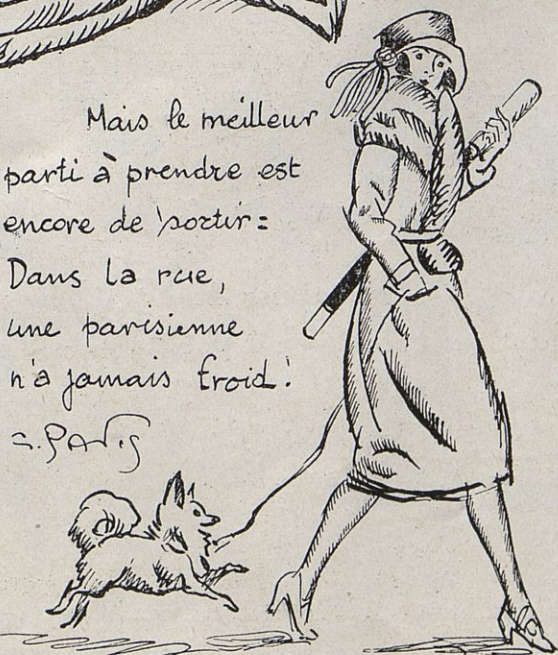 Mais le meilleur
parti à prendre est
encore de sortir :
Dans la rue,
une parisienne
n'a jamais froid !
G. PAVIS